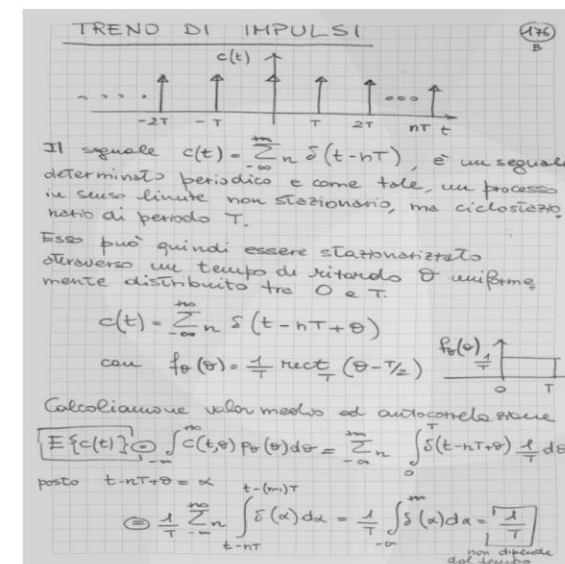 TRENO DI IMPULSI
176
B
c(t)
. . . .
...
-2T -T T 2T nT t
Il segnale c(t) = +∞ Σ -∞ n δ(t-nT), è un segnale
determinato periodico e come tale, un processo
in senso limite non stazionario, ma ciclostazio
nario di periodo T.
Esso può quindi essere stazionarizzato
attraverso un tempo di ritardo θ uniforme
mente distribuito tra 0 e T.
c(t) = +∞ Σ -∞ n δ(t-nT+θ)
con fθ(θ) = 1/T rect T (θ-T/2)
fθ(θ)
1/T
0 T
Calcoliamone valor medio ed autocorrelazione
E{c(t)} = ∫ -∞ +∞ c(t,θ) pθ(θ)dθ = +∞ Σ -∞ n ∫ 0 T δ(t-nT+θ) 1/T dθ
posto t-nT+θ = α
= 1/T +∞ Σ -∞ n ∫ t-nT t-(n-1)T δ(α)dα = 1/T ∫ -∞ +∞ δ(α)dα = 1/T
non dipende
dal tempo